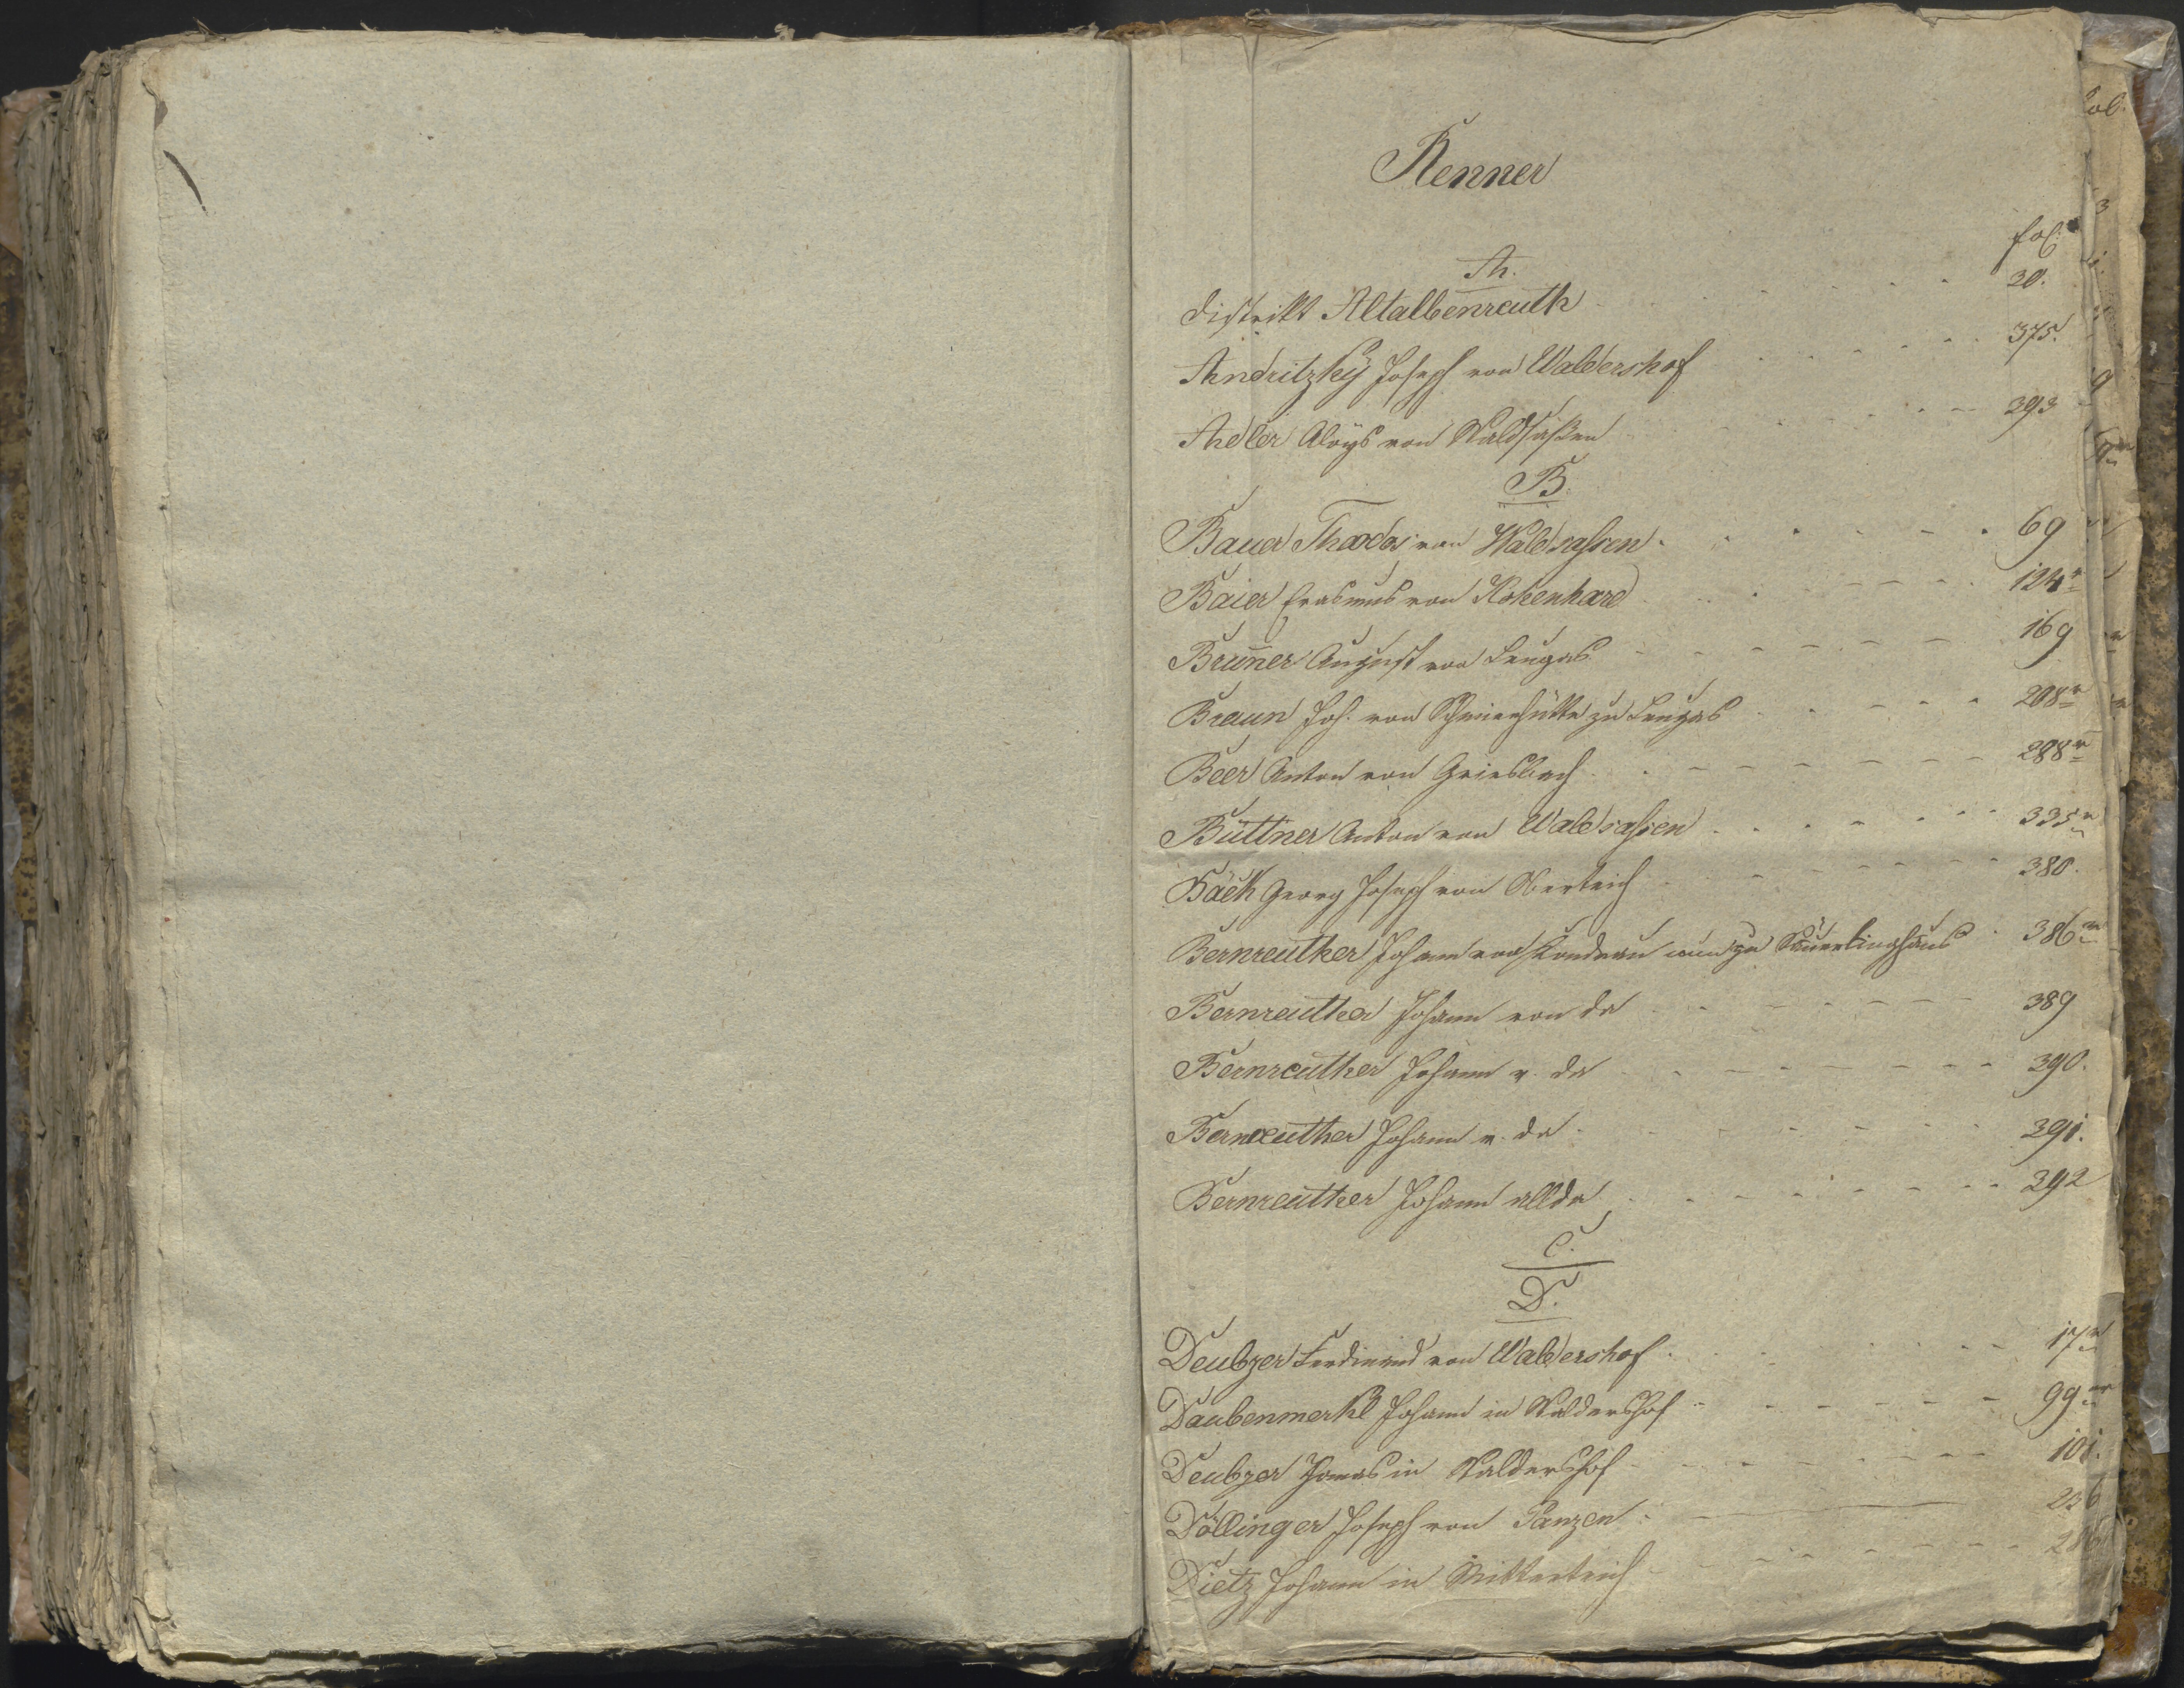 Renner
fol:
A.
District Altalbenreuth 20.
Andritzkÿ Joseph von Waldershof 375.
Adler Aloys von Waldsaßen 393
B.
Bauer von Waldsassen 69
Baier Erasmus von Kokenhard 124v
Brunner August von Leugas 169
Braun Joh. von Schmierhütte zu Leugas 208v
Beer Anton von Griesbach 288v
Büttner Anton von Waldsassen 335v
Bäck Georg Joseph von Oberteich 380.
Bernreuther Johann von Kondrau zu Sauerlinghaus 386v
Bernreuther Johann von da 389
Bernreuther Johann v. da 390.
Bernreuther Johann v. da 391.
Bernreuther Johann allda 392
C.
D.
Deubzer Ferdinand von Waldershof 17v
Daubenmerkl Johann in Waldershof 99v
Deubzer Thomas in Waldershof 101.
Döllinger Joseph von Panzen 236
Dietz Johann in Mitterteich